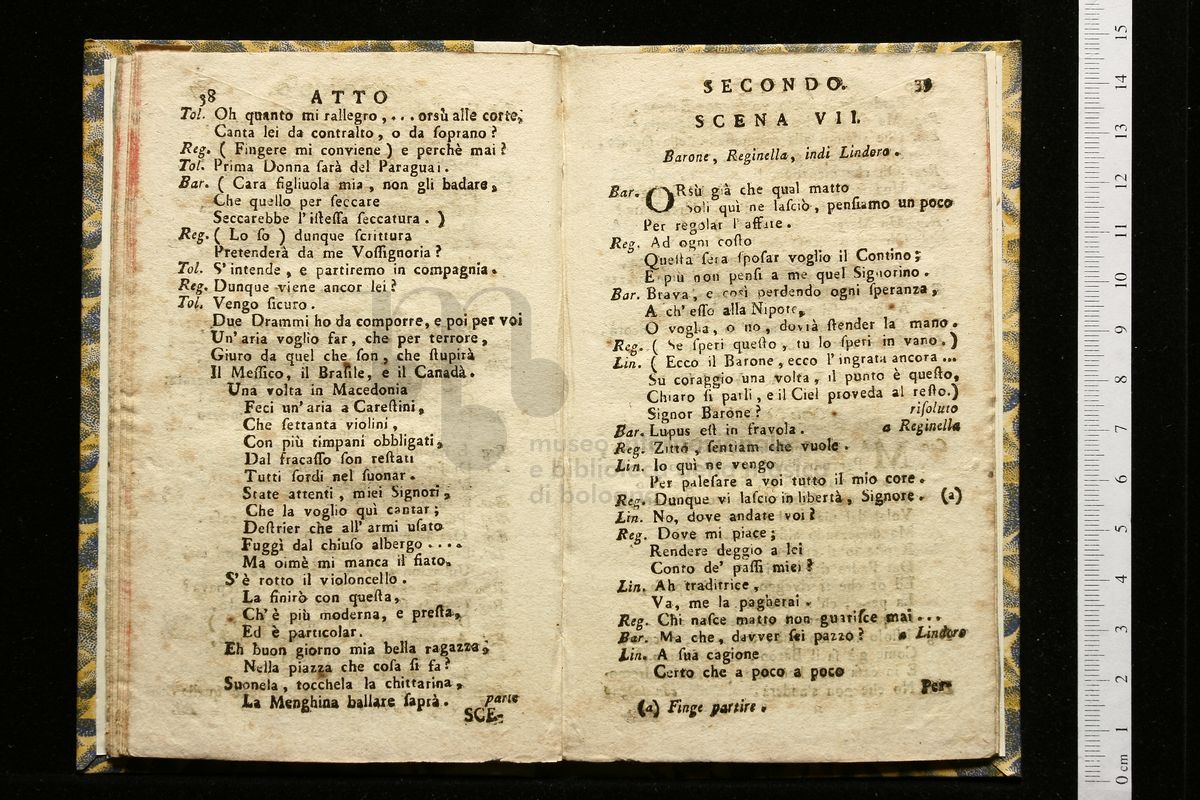 38 ATTO
Tol. Oh quanto mi rallegro, ... orsù alle corte,
Canta lei da contralto, o da ſoprano?
Reg. ( Fingere mi conviene ) e perchè mai?
Tol. Prima Donna ſarà del Paraguai.
Bar. ( Cara figliuola mia, non gli badare,
Che quello per ſeccare
Seccarebbe l'iſteſſa ſeccatura. )
Reg. ( Lo ſo ) dunque ſcrittura
Pretenderà da me Voſſignoria?
Tol. S'intende, e partiremo in compagnia.
Reg. Dunque viene ancor lei?
Tol. Vengo ſicuro.
Due Drammi ho da comporre, e poi per voi
Un'aria voglio far, che per terrore,
Giuro da quel che ſon, che ſtupirà
Il Meſſico, il Braſile, e il Canadà.
Una volta in Macedonia
Feci un'aria a Careſtini,
Che ſettanta violini,
Con più timpani obbligati,
Dal fracaſſo ſon reſtati
Tutti ſordi nel ſuonar.
State attenti, miei Signori,
Che la voglio quì cantar;
Deſtrier che all'armi uſato
Fuggì dal chiuſo albergo ....
Ma oimè mi manca il fiato,
S'è rotto il violoncello.
La finirò con queſta,
Ch'è più moderna, e preſta,
Ed è particolar.
Eh buon giorno mia bella ragazza;
Nella piazza che coſa ſi fa?
Suonela, tocchela la chittarina,
La Menghina ballare ſaprà. parte
SCE-
SECONDO. 39
SCENA VII.
Barone, Reginella, indi Lindoro.
Bar. ORsù già che qual matto
Soli quì ne laſciò, penſiamo un poco
Per regolar l'affare.
Reg. Ad ogni coſto
Queſta ſera ſpoſar voglio il Contino;
E più non penſi a me quel Signorino.
Bar. Brava, e così perdendo ogni ſperanza,
A ch'eſſo alla Nipote,
O voglia, o no, dovrà ſtender la mano.
Reg. ( Se ſperi queſto, tu lo ſperi in vano. )
Lin. ( Ecco il Barone, ecco l'ingrata ancora ...
Su coraggio una volta, il punto è queſto,
Chiaro ſi parli, e il Ciel proveda al reſto.)
Signor Barone? riſoluto
Bar. Lupus eſt in fravola. a Reginella
Reg. Zitto, ſentiam che vuole.
Lin. Io quì ne vengo
Per paleſare a voi tutto il mio core.
Reg. Dunque vi laſcio in libertà, Signore. (a)
Lin. No, dove andate voi?
Reg. Dove mi piace;
Rendere deggio a lei
Conto de' paſſi miei?
Lin. Ah traditrice,
Va, me la pagherai.
Reg. Chi naſce matto non guariſce mai...
Bar. Ma che, davver ſei pazzo? a Lindoro
Lin. A ſua cagione
Certo che a poco a poco
Per-
(a) Finge partire.
museo
e biblioteca
di bologna
0 cm 1 2 3 4 5 6 7 8 9 10 11 12 13 14 15